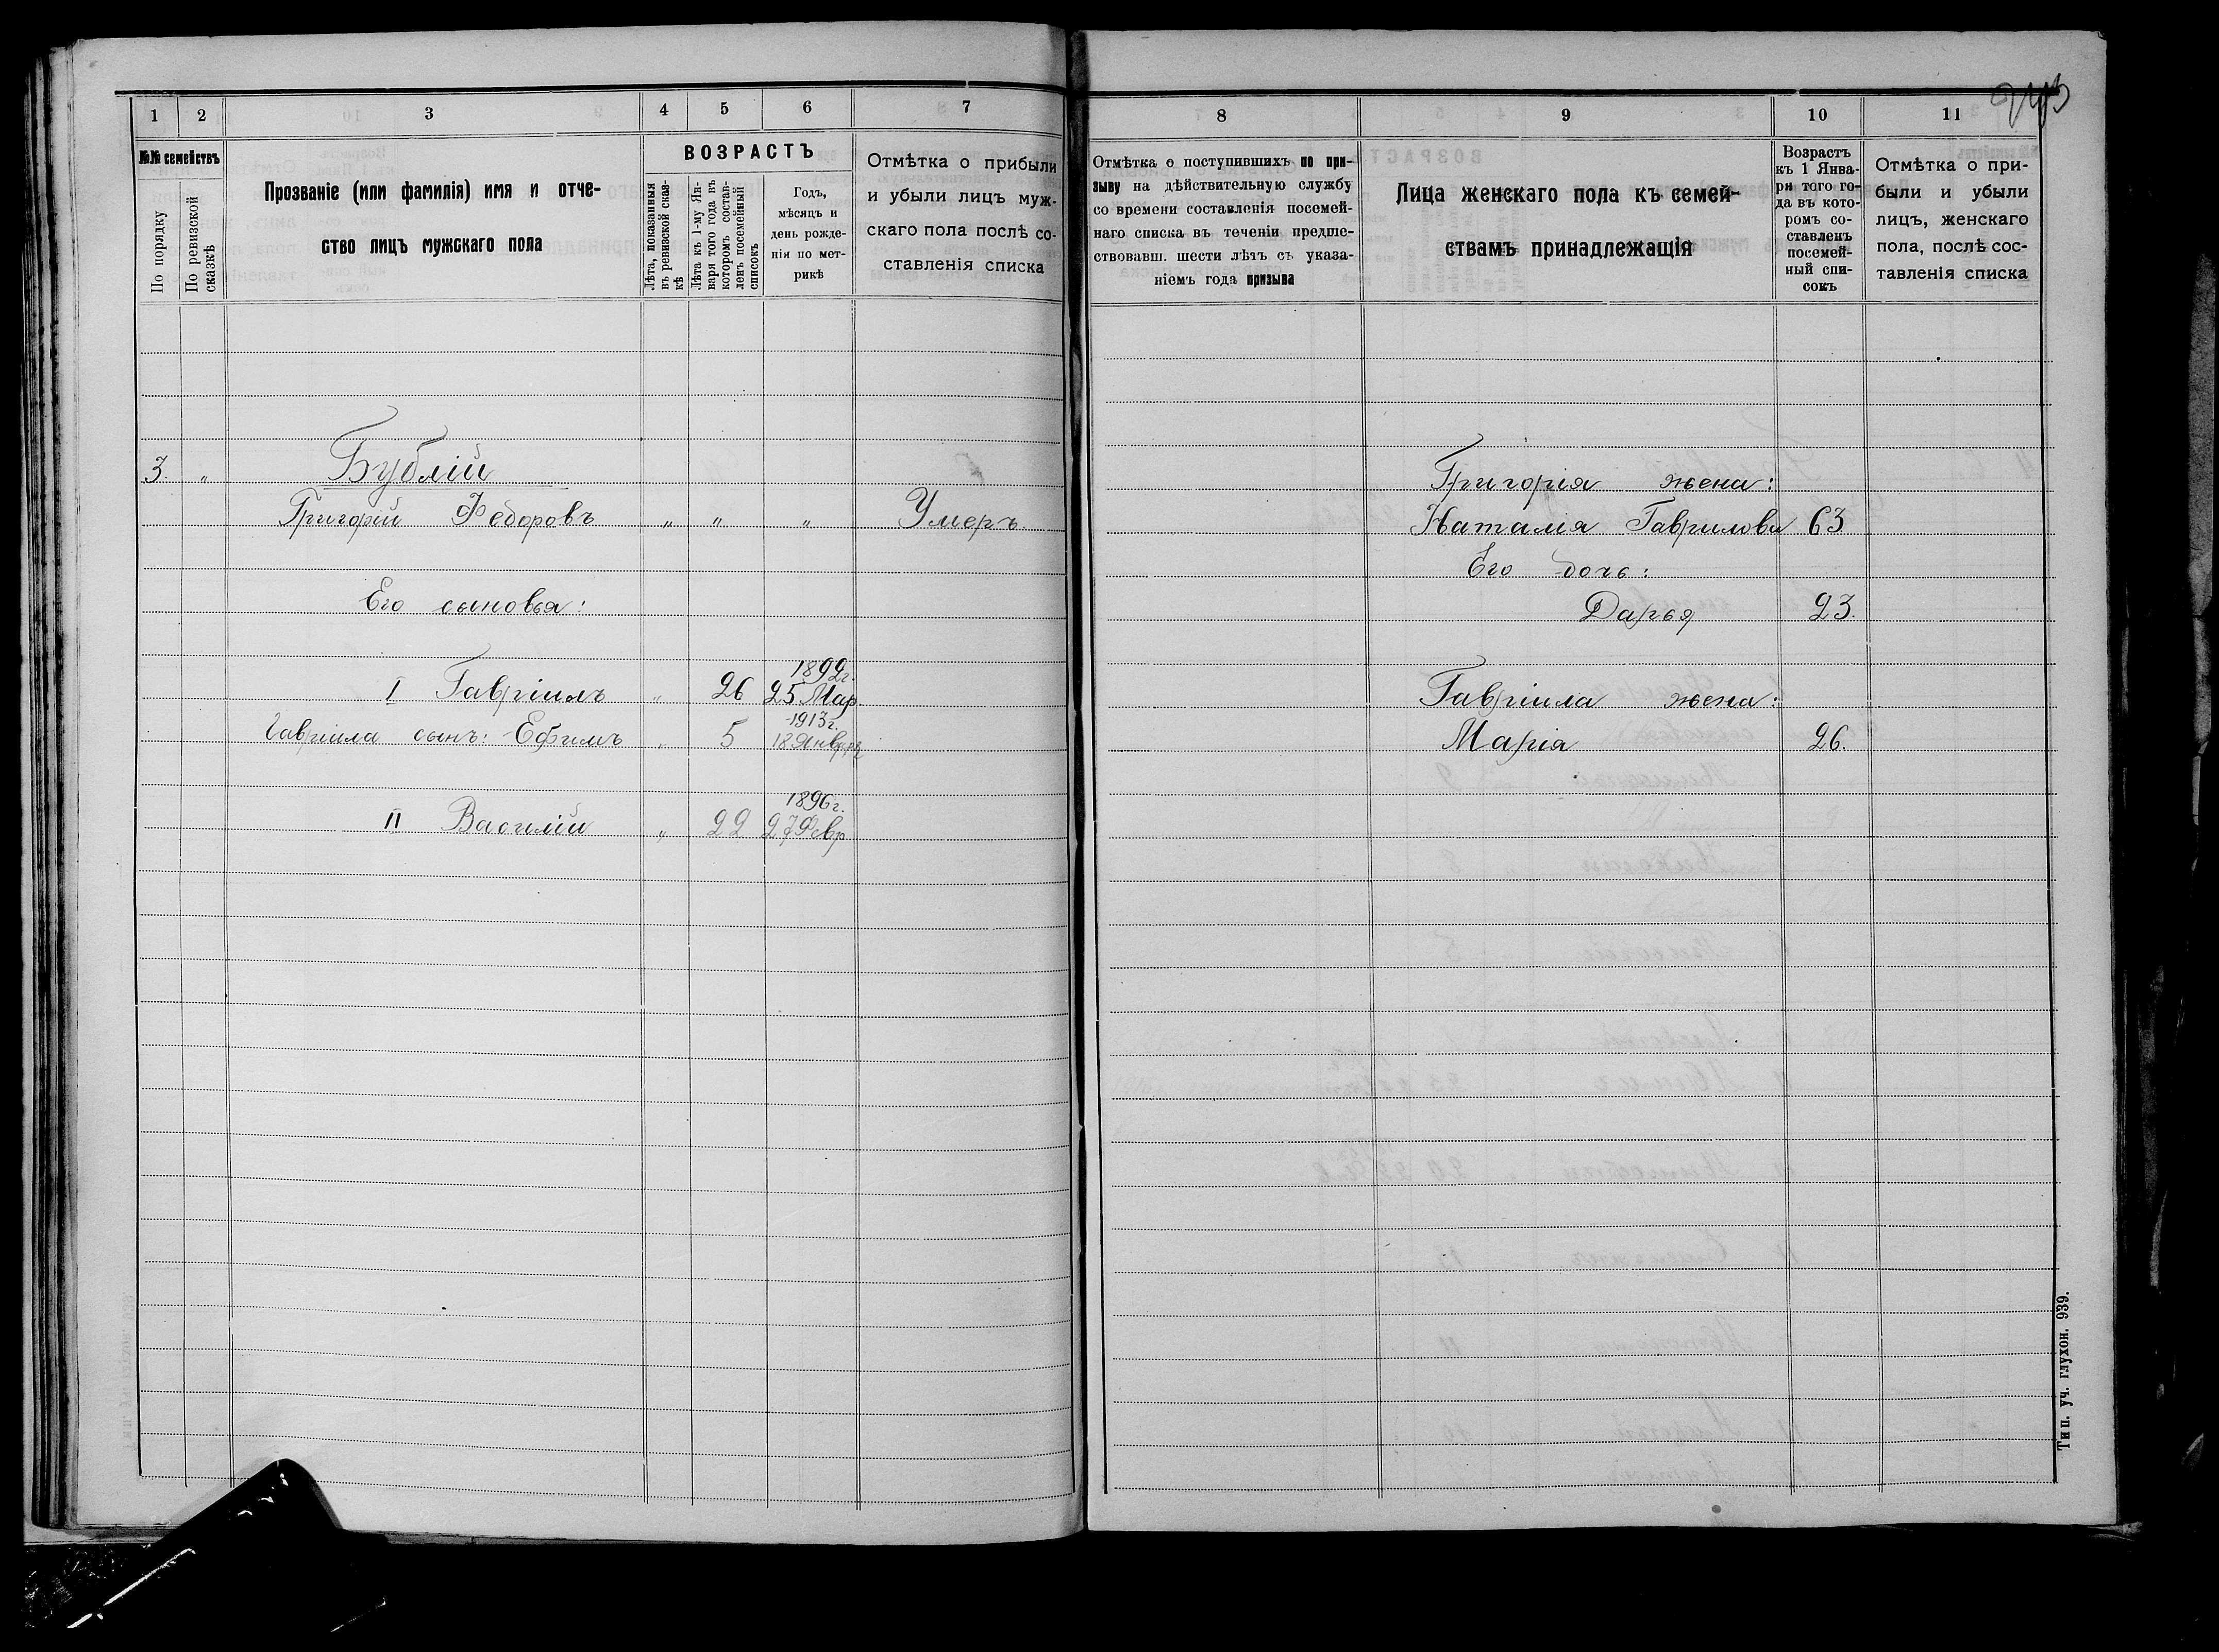 1 2 3 4 5 6 7
№№ семействъ
По порядку
По ревизской
сказкѣ
Прозваніе (или фамилія) имя и отче-
ство лицъ мужскаго пола
ВОЗРАСТЪ
Лѣта, показанныя
въ ревизской сказ-
кѣ
Лѣта къ 1-му Ян-
варя того года въ
которомъ состав-
ленъ посемейный
списокъ
Годъ,
мѣсяцъ и
день рожде-
нія по мет-
рикѣ
Отмѣтка о прибыли
и убыли лицъ муж-
скаго пола послѣ со-
ставленія списка
3. „ Бублій
Григорій Федоровъ „ „ „ Умеръ.
Его сыновья:
1892г.
I Гавріилъ „ 26 25 Мар
1913г.
Гавріила сынъ: Ефимъ „ 5 18 Января
1896г.
II Василій „ 22 27 Февр
8 9 10 11
Отмѣтка о поступившихъ по при-
зыву на дѣйствительную службу
со времени составленія посемей-
наго списка въ теченіи предше-
ствовавш. шести лѣтъ съ указа-
ніемъ года призыва
Лица женскаго пола къ семей-
ствамъ принадлежащія
Возрастъ
къ 1 Янва-
ря того го-
да въ кото-
ромъ со-
ставленъ
посемей-
ный спи-
сокъ
Отмѣтка о при-
были и убыли
лицъ, женскаго
пола, послѣ сос-
тавленія списка
Григорія жена:
Наталія Гаврилова 63
Его дочь:
Дарья 23.
Гавріила жена:
Марія 26.
Тип. уч. глухон. 939.